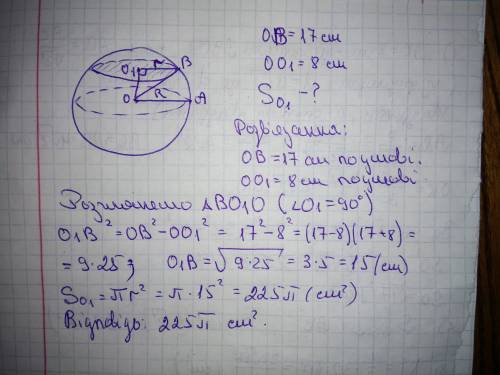 OB = 17 см
OO1 = 8 см
SO1 - ?
O1 r B
O R A
Розв'язання:
OB = 17 см по умові.
OO1 = 8 см по умові
Розглянемо ΔBO1O (∠O1 = 90°)
O1B² = OB² - OO1² = 17² - 8² = (17-8)(17+8) =
= 9·25; O1B = √9·25 = 3·5 = 15 (см)
SO1 = πr² = π·15² = 225π (см²)
Відповідь: 225π см².